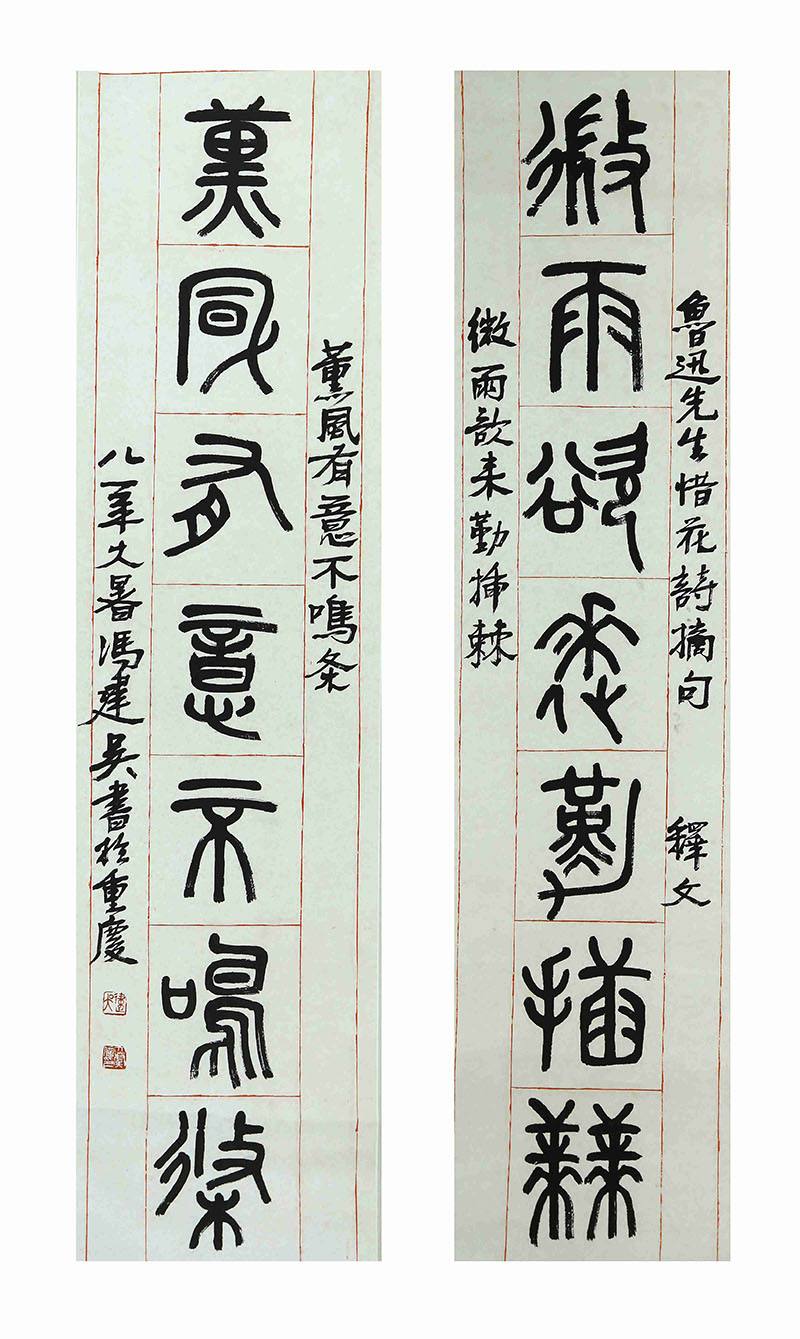 魯迅先生惜花詩摘句 釋文
微雨欲來勤插棘
微雨欲来勤插棘
薰風有意不鳴条
薰風有意不鳴條
八一年大暑馮建吳書於重慶